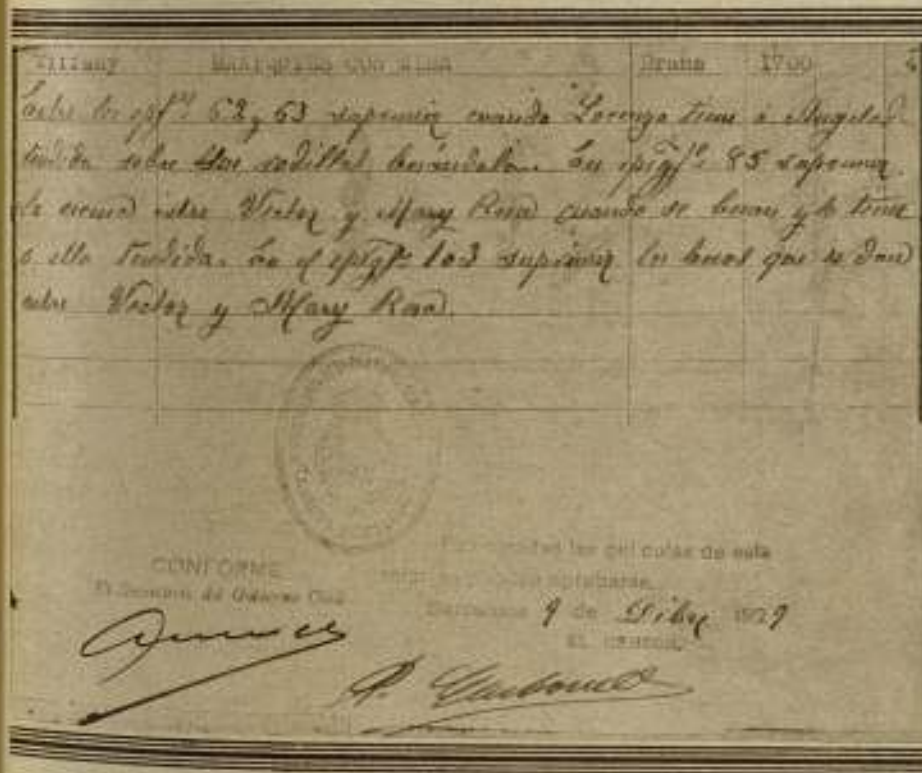 Tiffany MARIQUITAS CON Drama 1700 4
Entre los epígfs 62 y 63 suprimir cuando Lorenzo tiene á Angeles
tendida sobre sus rodillas besándola. En epígfe 85 suprimir
la escena entre Victor y Mary Rosa cuando se besan y le tiene
a ella tendida. En el epígfe 103 suprimir los besos que se dan
entre Victor y Mary Rosa.
CONFORME
El Secretario del Gobierno Civil
las películas de esta
aprobarse.
Barcelona 9 de Dibre 1929
EL CENSOR,